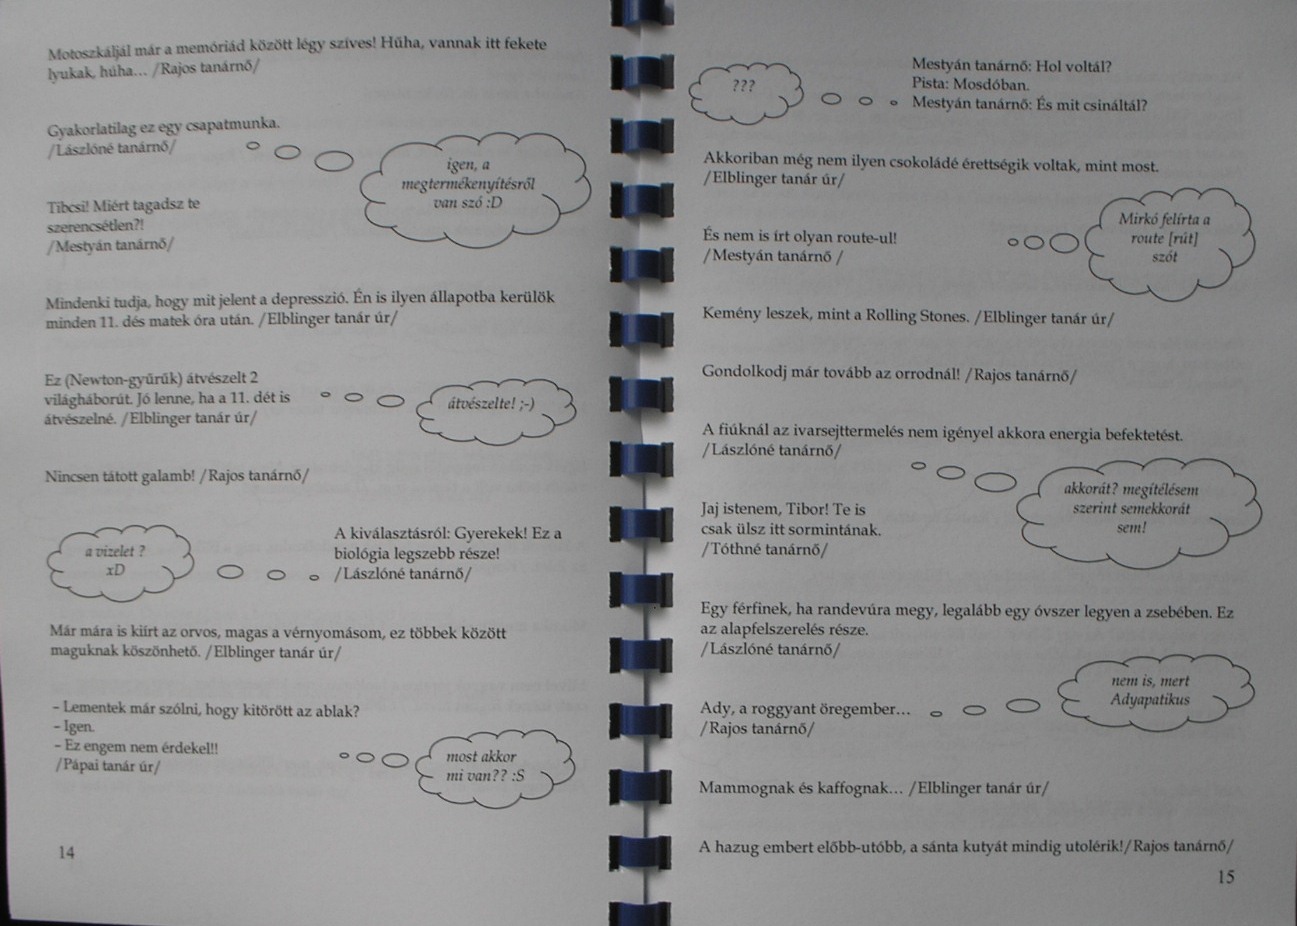 Motoszkáljál már a memóriád között légy szíves! Hűha, vannak itt fekete
lyukak, húha... /Rajos tanárnő/
Gyakorlatilag ez egy csapatmunka.
/Lászlóné tanárnő/
igen, a
megtermékenyítésről
van szó :D
Tibcsi! Miért tagadsz te
szerencsétlen?!
/Mestyán tanárnő/
Mindenki tudja, hogy mit jelent a depresszió. Én is ilyen állapotba kerülök
minden 11. dés matek óra után. /Elblinger tanár úr/
Ez (Newton-gyűrűk) átvészelt 2
világháborút. Jó lenne, ha a 11. dét is
átvészelné. /Elblinger tanár úr/
átvészelte! ;-)
Nincsen tátott galamb! /Rajos tanárnő/
a vizelet ?
xD
A kiválasztásról: Gyerekek! Ez a
biológia legszebb része!
/Lászlóné tanárnő/
Már mára is kiírt az orvos, magas a vérnyomásom, ez többek között
maguknak köszönhető. /Elblinger tanár úr/
– Lementek már szólni, hogy kitörött az ablak?
– Igen.
– Ez engem nem érdekel!!
/Pápai tanár úr/
most akkor
mi van?? :S
14
???
Mestyán tanárnő: Hol voltál?
Pista: Mosdóban.
Mestyán tanárnő: És mit csináltál?
Akkoriban még nem ilyen csokoládé érettségik voltak, mint most.
/Elblinger tanár úr/
És nem is írt olyan route-ul!
/Mestyán tanárnő /
Mirkó felírta a
route [rút]
szót
Kemény leszek, mint a Rolling Stones. /Elblinger tanár úr/
Gondolkodj már tovább az orrodnál! /Rajos tanárnő/
A fiúknál az ivarsejttermelés nem igényel akkora energia befektetést.
/Lászlóné tanárnő/
akkorát? megítélésem
szerint semekkorát
sem!
Jaj istenem, Tibor! Te is
csak ülsz itt sormintának.
/Tóthné tanárnő/
Egy férfinek, ha randevúra megy, legalább egy óvszer legyen a zsebében. Ez
az alapfelszerelés része.
/Lászlóné tanárnő/
nem is, mert
Adyapatikus
Ady, a roggyant öregember...
/Rajos tanárnő/
Mammognak és kaffognak... /Elblinger tanár úr/
A hazug embert előbb-utóbb, a sánta kutyát mindig utolérik!/Rajos tanárnő/
15